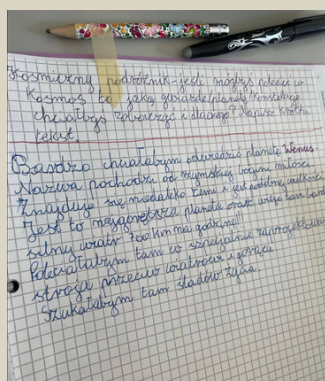 Kosmiczny podróżnik - jeśli mógłbyś polecieć w
kosmos to jaką gwiazdę planetę konstelację
chciałbyś zobaczyć i dlaczego? Napisz krótki
tekst.
Bardzo chciałabym odwiedzić planetę Wenus.
Nazwa pochodzi od rzymskiej bogini miłości.
Znajduje się niedaleko Ziemi i jest podobnej wielkości
Jest to najgorętsza planeta oraz wieje tam bardzo
silny wiatr 700 km na godzinę!!
Poleciałabym tam w specjalnie zaprojektowanym
stroju przeciw wiatrowi i gorącu
Szukałabym tam śladów życia.